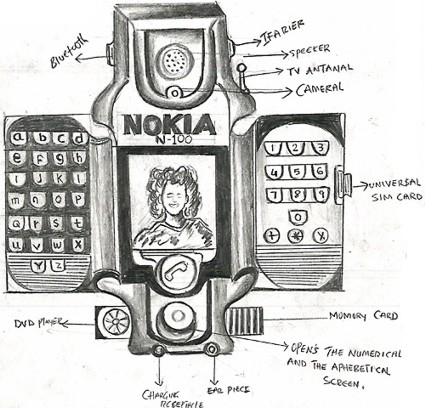 Bluetooth
IFARIER
SPECKER
TV ANTANAL
CAMERAL
NOKIA
N-100
a b c d
e f g h
i J K l
m n o p
q r s t
u v w x
Y Z
1 2 3
4 5 6
7 8 9
0
* * X
UNIVERSAL
SIM CARD
DVD PLAYER
MUMORY CARD
OPEN'S THE NUMERICAL
AND THE APHERETICAL
SCREEN.
CHARGING
RECEPTICLE
EAR PIECE